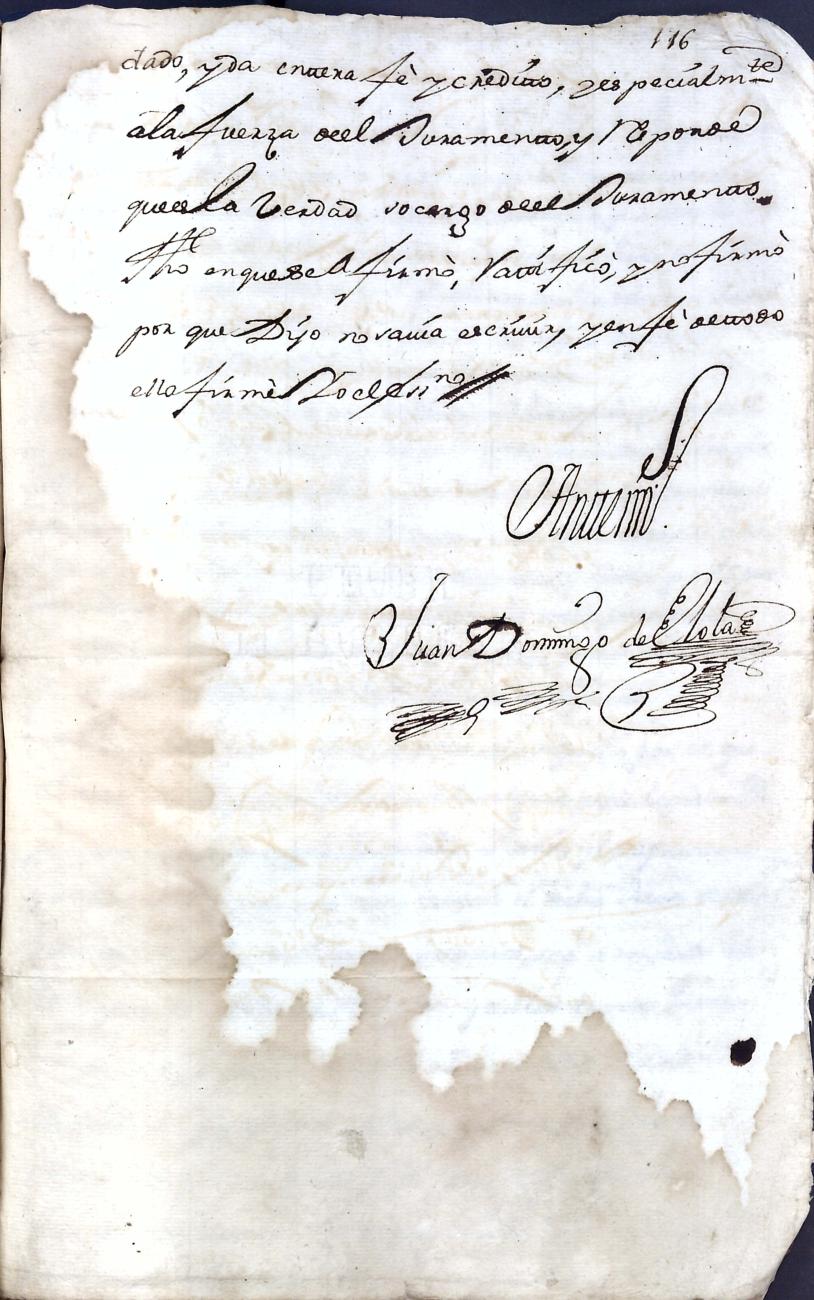 116
dado, y da enttera fè y creditto, y especialmte
a la fuerza deel Juramentto, y Responde
que es la Verdad so cargo deel Juramentto
fho en que se a firmò, Rattificò, y no firmò
por que Dijo no savia escrivir, y en fè de ttodo
ello firmè Yo el Essno
Anttemi
Juan Domingo de